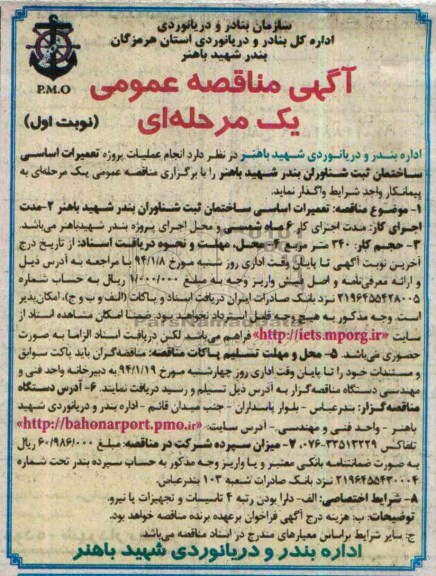 سازمان بنادر و دریانوردی
اداره کل بنادر و دریانوردی استان هرمزگان
بندر شهید باهنر
P.M.O
آگهی مناقصه عمومی
یک مرحله‌ای
(نوبت اول)
اداره بندر و دریانوردی شهید باهنر در نظر دارد انجام عملیات پروژه تعمیرات اساسی
ساختمان ثبت شناوران بندر شهید باهنر را با برگزاری مناقصه عمومی یک مرحله‌ای به
پیمانکار واجد شرایط واگذار نماید.
۱- موضوع مناقصه: تعمیرات اساسی ساختمان ثبت شناوران بندر شهید باهنر ۲-مدت
اجرای کار: مدت اجرای کار ۶ ماه شمسی و محل اجرای پروژه بندر شهیدباهنر می‌باشد.
۳- حجم کار: ۳۴۰ متر مربع ۴-محل، مهلت و نحوه دریافت اسناد: از تاریخ درج
آخرین نوبت آگهی تا پایان وقت اداری روز شنبه مورخ ۹۴/۱/۸ با مراجعه به آدرس ذیل
و ارائه معرفی‌نامه و اصل فیش واریز وجه به مبلغ ۱/۰۰۰/۰۰۰ ریال به حساب شماره
۲۱۹۶۴۵۵۴۲۸۰۰۵ نزد بانک صادرات ایران دریافت اسناد و پاکات (الف و ب و ج)، امکان‌پذیر
است. وجه مذکور به هیچ وجه قابل استرداد نخواهد بود. ضمنا امکان مشاهده اسناد از
سایت «http://iets.mporg.ir» فراهم می‌باشد لکن دریافت اسناد الزاما به صورت
حضوری می‌باشد. ۵- محل و مهلت تسلیم پاکات مناقصه: مناقصه‌گران باید پاکت سوابق
و مستندات خود را تا پایان وقت اداری روز چهارشنبه مورخ ۹۴/۱/۱۹ به دبیرخانه واحد فنی و
مهندسی دستگاه مناقصه‌گزار به آدرس ذیل تسلیم و رسید دریافت نمایند. ۶- آدرس دستگاه
مناقصه‌گزار: بندرعباس - بلوار پاسداران - جنب میدان قائم - اداره بندر و دریانوردی شهید
باهنر - واحد فنی و مهندسی- آدرس سایت: «http://bahonarport.pmo.ir»
تلفاکس ۳۳۵۱۳۲۲۹-۰۷۶ ۷- میزان سپرده شرکت در مناقصه: مبلغ ۶۰/۹۸۶/۰۰۰ ریال
به صورت ضمانتنامه بانکی معتبر و یا واریز وجه مذکور به حساب سپرده بندر تحت شماره
۲۱۹۶۴۵۵۴۳۰۰۰۴ نزد بانک صادرات شعبه ۱۰۳ بندرعباس.
۸- شرایط اختصاصی: الف- دارا بودن رتبه ۴ تاسیسات و تجهیزات یا نیرو.
توضیحات: ب: هزینه درج آگهی فراخوان برعهده برنده مناقصه خواهد بود.
ج: سایر شرایط براساس معیارهای مندرج در اسناد مناقصه می‌باشد.
اداره بندر و دریانوردی شهید باهنر